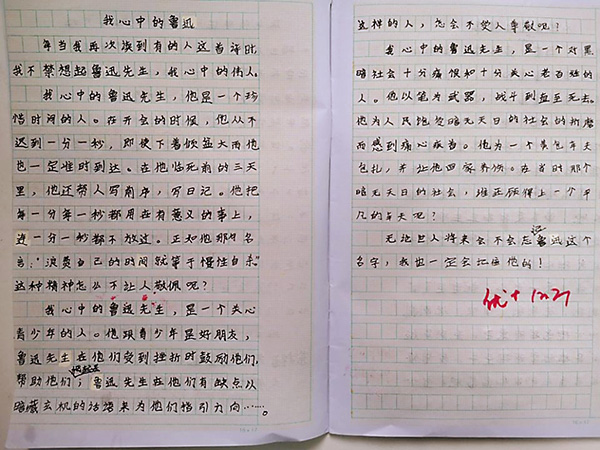 我心中的鲁迅
每当我再次读到有的人这首诗时,
我不禁想起鲁迅先生,我心中的伟人。
我心中的鲁迅先生,他是一个珍
惜时间的人。在开会的时候,他从不
迟到一分一秒,即使下着倾盆大雨他
也一定准时到达。在他临死前的三天
里,他还帮人写前序,写日记。他把
每一分每一秒都用在有意义的事上,
进一分一秒都不放过。正如他那句名
言:"浪费自己的时间就等于慢性自杀"
这种精神怎么不让人敬佩呢?
我心中的鲁迅先生",是一个关心
青少年的人。他跟青少年是好朋友,
鲁迅先生在他们受到挫折时鼓励他们,
帮助他们;鲁迅先生在他们有缺点以
暗藏玄机的话语来为他们指引方向……。
这样的人,怎会不受人尊敬呢?
我心中的鲁迅先生,是一个对黑
暗社会十分痛恨和十分关心老百姓的
人。他以笔为武器,战斗到血至死去。
他为人民饱受暗无天日的社会的折磨
而感到痛心疾首。他为一个黄包车夫
包扎,并让他回家养伤。在当时那个
暗无天日的社会,谁正顾得上一个平
凡的车夫呢?
无论巨人将来会不会忘记鲁迅这个
名字,我也一定会记住他的!
优+ 12.21